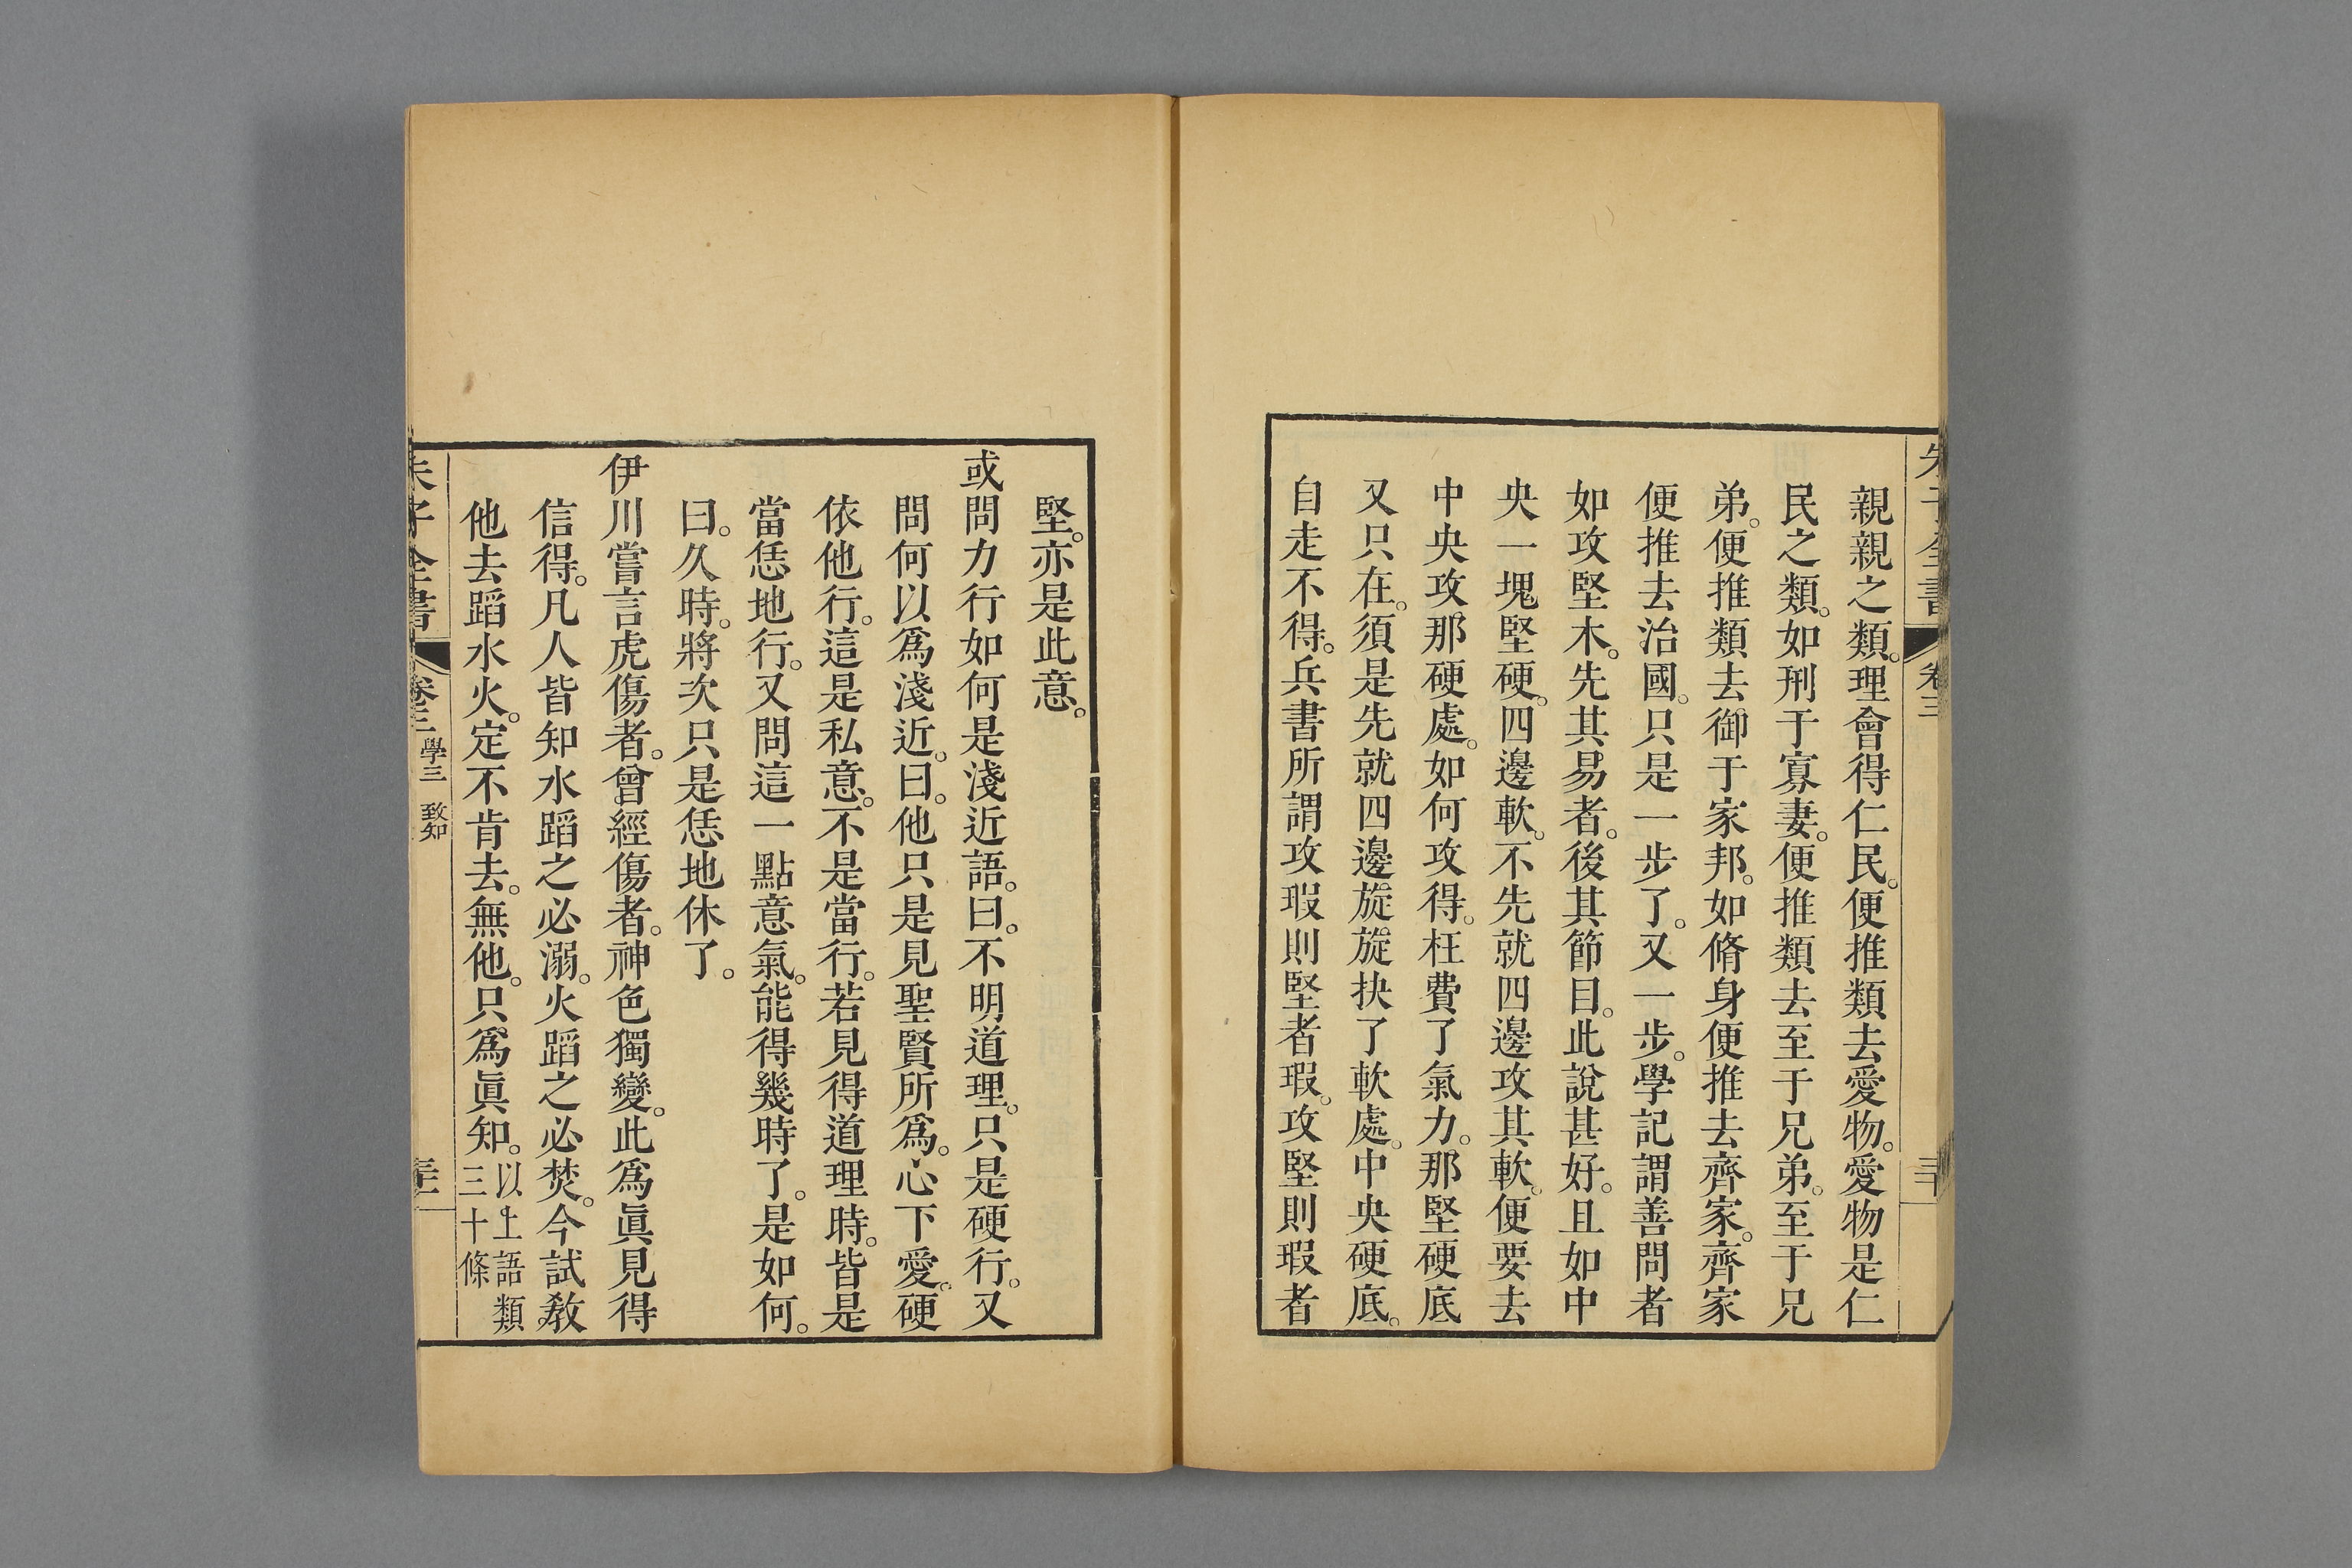 朱子全書 卷三
親親之類。理會得仁民。便推類去愛物。愛物是仁
民之類。如刑于寡妻。便推類去至于兄弟。至于兄
弟。便推類去御于家邦。如脩身便推去齊家。齊家
便推去治國。只是一步了。又一步。學記謂善問者
如攻堅木。先其易者。後其節目。此說甚好。且如中
央一塊堅硬。四邊軟。不先就四邊攻其軟。便要去
中央攻那硬處。如何攻得。枉費了氣力。那堅硬底
又只在。須是先就四邊旋旋抉了軟處。中央硬底。
自走不得。兵書所謂攻瑕則堅者瑕。攻堅則瑕者
堅。亦是此意。
或問力行如何是淺近語。曰。不明道理。只是硬行。又
問何以爲淺近。曰。他只是見聖賢所爲。心下愛。硬
依他行。這是私意。不是當行。若見得道理時。皆是
當恁地行。又問這一點意氣。能得幾時了。是如何。
曰。久時。將次只是恁地休了。
伊川嘗言虎傷者。曾經傷者。神色獨變。此爲眞見得
信得。凡人皆知水蹈之必溺。火蹈之必焚。今試敎
他去蹈水火。定不肯去。無他。只爲眞知。以上語類三十條
朱子全書 卷三 學三 致知